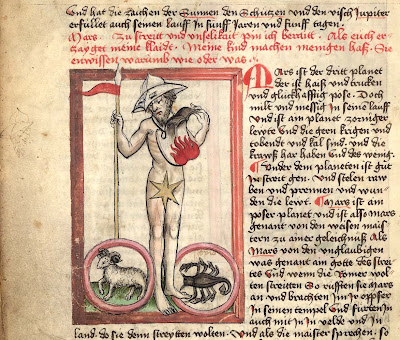 Und hat die zaichen der Sunnen den Schutzen und den visch Jupiter
erfüllet auch seinen lauff in fünff Jaren und fünff tagen.
Mars. Zu streitt und unselikait pin ich berait. Als euch er-
zayget meine klaide. Meine kind machen menigen haß. Sie
enwissen warumb wie oder was.
Mars ist der dritt planet
der ist haiß und trucken
und gluckhafftig pose. Doch
milt und messig in seine lauff
Und ist am planet zorniger
lewte Und die gern krigen und
tobendt und kal sind. und die
krawß har haben Und des wenig.
Under dem planeten ist gut
in streit gen. Und stelen raw
ben und prennen und wun-
den die lewt. Mars ist am
poser planet und ist also Mars
genant von den weisen mais
tern zu ainer geleichniß Als
Mars von den unglaubigen
was genant am gotte des strei-
tes Und wenn die Romer wol
ten streitten So rüfften sie mars
an und brachten Im Ir opffer
in seinen tempel Und fürten in
auch mit In in velde und in
land. do sie denn streytten wolten. Und als die maister sprechen. so